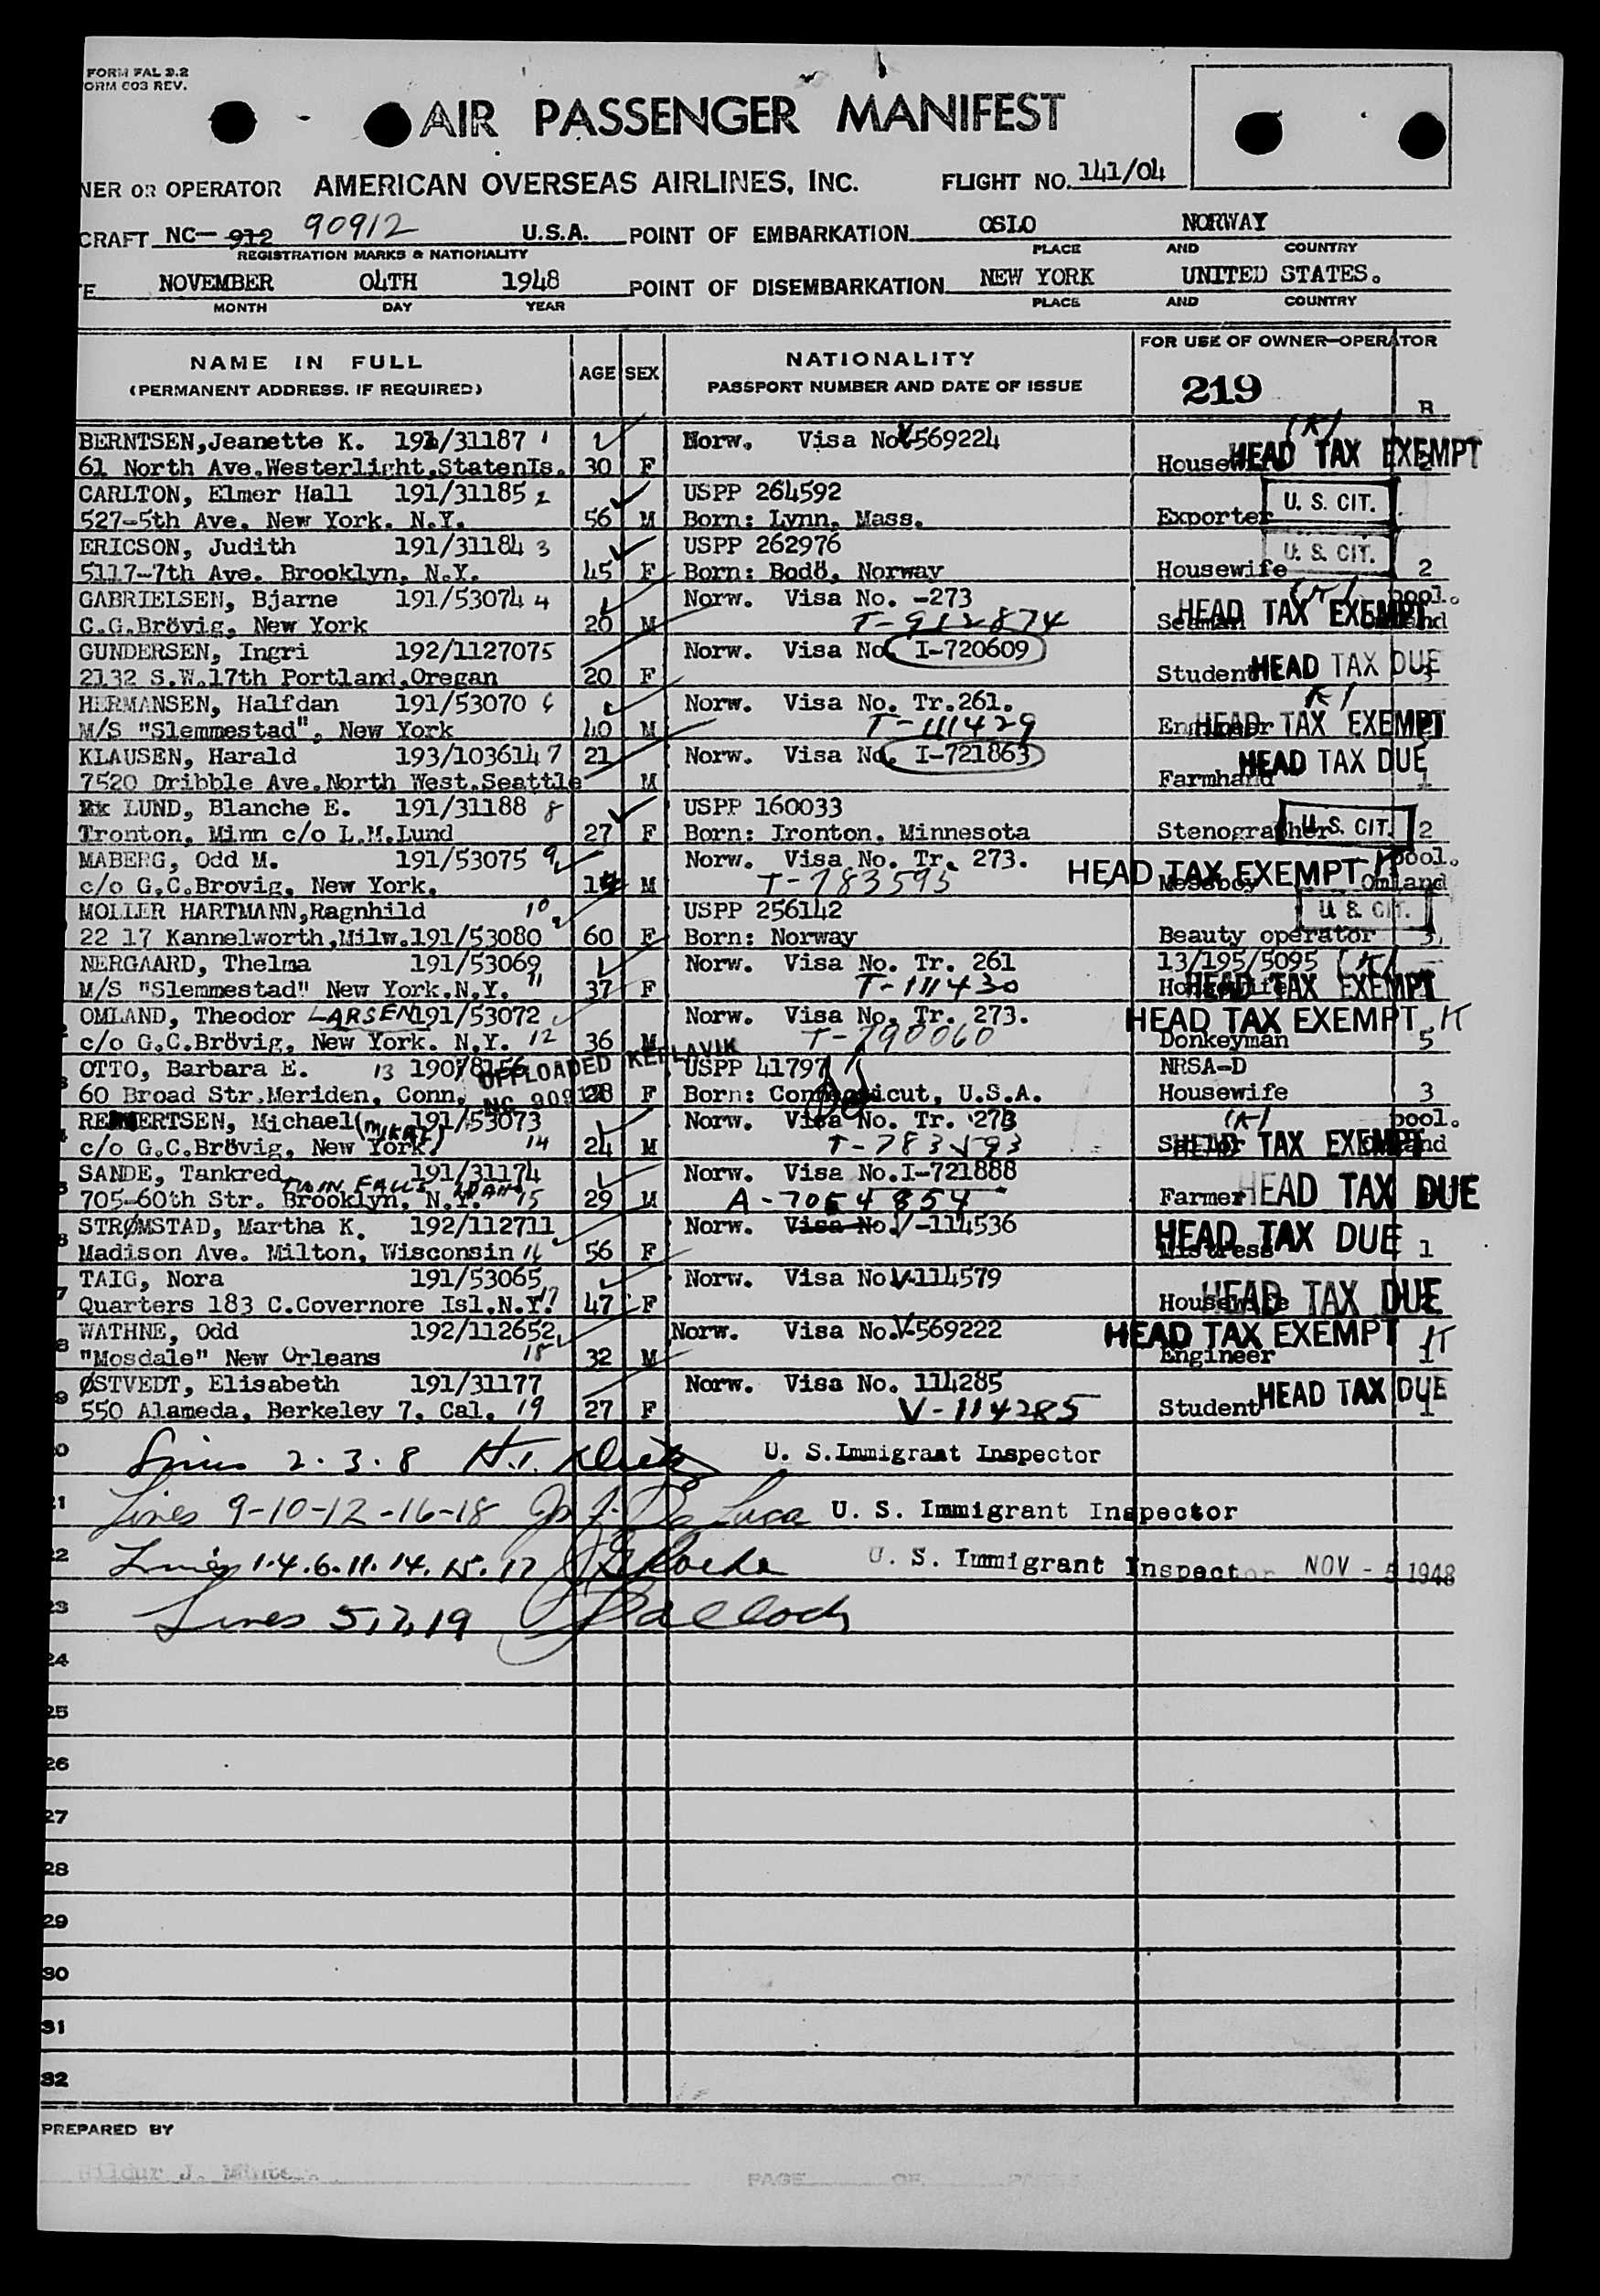 FORM FAL 2.2
ORM 603 REV.
AIR PASSENGER MANIFEST
NER OR OPERATOR AMERICAN OVERSEAS AIRLINES, INC. FLIGHT NO. 141/04
CRAFT NC— 912 90912 U.S.A. POINT OF EMBARKATION OSLO NORWAY
REGISTRATION MARKS & NATIONALITY PLACE AND COUNTRY
E NOVEMBER 04TH 1948 POINT OF DISEMBARKATION NEW YORK UNITED STATES.
MONTH DAY YEAR PLACE AND COUNTRY
NAME IN FULL AGE SEX NATIONALITY FOR USE OF OWNER—OPERATOR
(PERMANENT ADDRESS. IF REQUIRED) PASSPORT NUMBER AND DATE OF ISSUE 219
BERNTSEN,Jeanette K. 191/31187 1 Norw. Visa No V-569224 HEAD TAX EXEMPT
61 North Ave.Westerlight,StatenIs. 30 F 2
CARLTON, Elmer Hall 191/31185 2 USPP 264592 U. S. CIT.
527-5th Ave. New York. N.Y. 56 M Born: Lynn, Mass. Exporter
ERICSON, Judith 191/31184 3 USPP 262976 U. S. CIT.
5117-7th Ave. Brooklyn, N.Y. 45 F Born: Bodö, Norway Housewife 2
GABRIELSEN, Bjarne 191/53074 4 Norw. Visa No. -273 HEAD TAX EXEMPT pool.
C.G.Brövig, New York 20 M T-912874 Seaman
GUNDERSEN, Ingri 192/1127075 Norw. Visa No. I-720609 HEAD TAX DUE
2132 S.W.17th Portland,Oregan 20 F Student
HERMANSEN, Halfdan 191/53070 6 Norw. Visa No. Tr.261.
M/S "Slemmestad", New York 40 M T-111429 Engineer HEAD TAX EXEMPT
KLAUSEN, Harald 193/103614 7 21 Norw. Visa No. I-721863 HEAD TAX DUE
7520 Dribble Ave.North West.Seattle M Farmhand 1
LUND, Blanche E. 191/31188 8 USPP 160033 U. S. CIT.
Tronton, Minn c/o L.M.Lund 27 F Born: Ironton. Minnesota Stenographer 2
MABERG, Odd M. 191/53075 9 Norw. Visa No. Tr. 273. HEAD TAX EXEMPT pool.
c/o G.C.Brovig, New York. M T-783595 Messboy Omland
MOLLER HARTMANN,Ragnhild 10 USPP 256142 U. S. CIT.
22 17 Kannelworth,Milw.191/53080 60 F Born: Norway Beauty operator 3.
NERGAARD, Thelma 191/53069 Norw. Visa No. Tr. 261 13/195/5095
M/S "Slemmestad" New York.N.Y. 11 37 F T-111430 Housewife HEAD TAX EXEMPT
OMLAND, Theodor LARSEN 191/53072 Norw. Visa No. Tr. 273. HEAD TAX EXEMPT
c/o G.C.Brövig, New York. N.Y. 12 36 M T-790060 Donkeyman 5
OTTO, Barbara E. 13 190/8156 OFFLOADED KEFLAVIK USPP 41797 NRSA-D
60 Broad Str.Meriden, Conn. NC 90912 28 F Born: Connecticut, U.S.A. Housewife 3
REINERTSEN, Michael 191/53073 Norw. Visa No. Tr. 273 pool.
c/o G.C.Brövig, New York. 14 24 M T-783593 Sailor HEAD TAX EXEMPT
SANDE, Tankred 191/31174 Norw. Visa No.I-721888
TWIN FALLS IDAHO
705-60th Str. Brooklyn, N.Y. 15 29 M A-7054854 Farmer HEAD TAX DUE
STRØMSTAD, Martha K. 192/112711 Norw. Visa No. V-114536 HEAD TAX DUE
Madison Ave. Milton, Wisconsin 16 56 F 1
TAIG, Nora 191/53065 Norw. Visa No V-114579
Quarters 183 C.Covernore Isl.N.Y. 17 47 F Housewife HEAD TAX DUE
WATHNE, Odd 192/112652 Norw. Visa No.V-569222 HEAD TAX EXEMPT
"Mosdale" New Orleans 18 32 M Engineer 1
ØSTVEDT, Elisabeth 191/31177 Norw. Visa No. 114285 HEAD TAX DUE
550 Alameda, Berkeley 7. Cal. 19 27 F V-114285 Student 1
Lines 2.3.8 U. S.Immigrant Inspector
21 Lines 9-10-12-16-18 De Luca U. S. Immigrant Inspector
22 Lines 1.4.6.11.14.15.17 U. S. Immigrant Inspector NOV - 5 1948
23 Lines 5,7,19
24
25
26
27
28
29
30
31
32
PREPARED BY
Hildur J.
PAGE OF